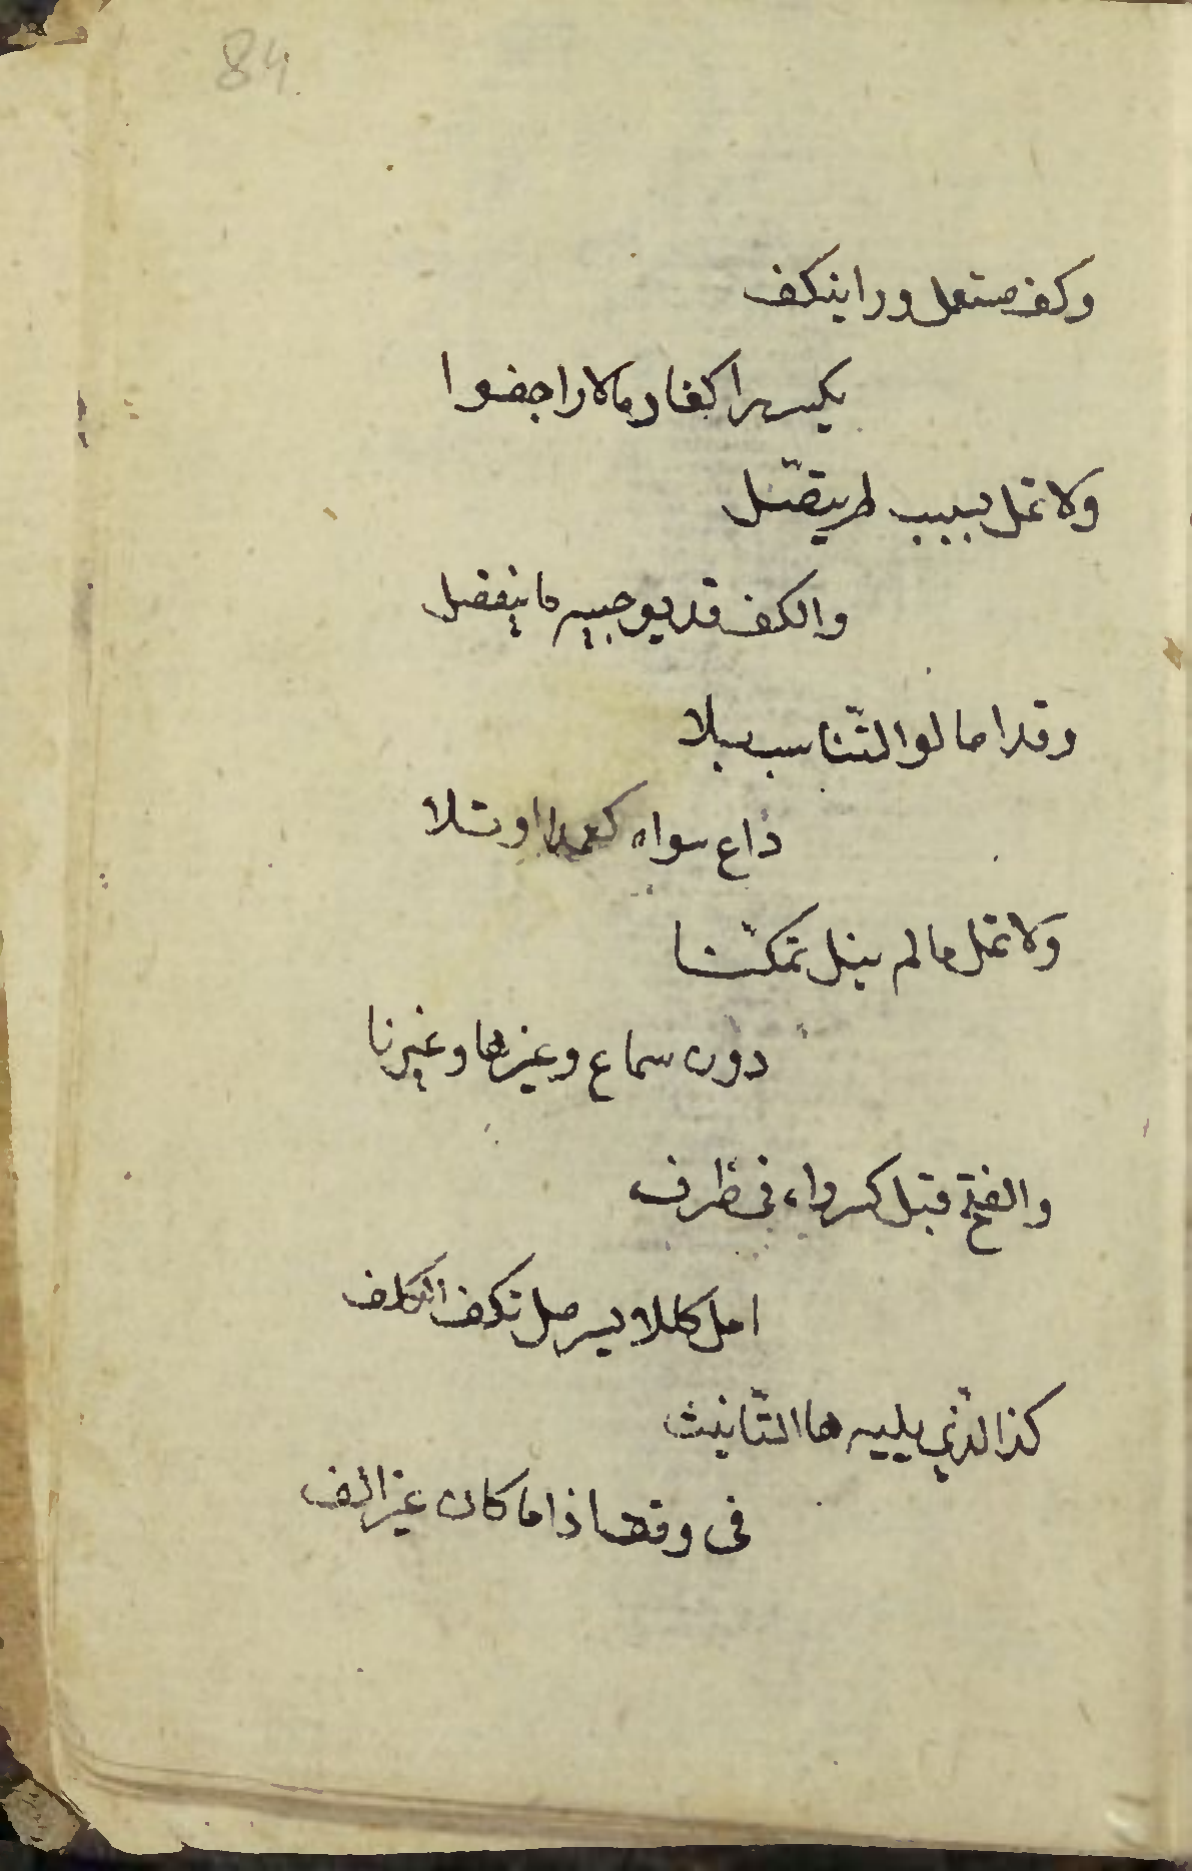 84
وكف مستعل ورا ينكف
بكسر را كغارما لا را جفوا
ولا تمل بسبب لم يتّصل
والكف قد يوجبه ما ينفصل
وقد امالوا لتّناسب بلا
داع سواه كعمدا وتلا
ولا تمل ما لم ينل تمكّنا
دون سماع وغيرها وغيرنا
والفتح قبل كسر راء فى طرف
امل كللايسر مل تكف الكلف
كذا الّذي يليه ها التّانيث
فى وقف اذا ما كان غير الف